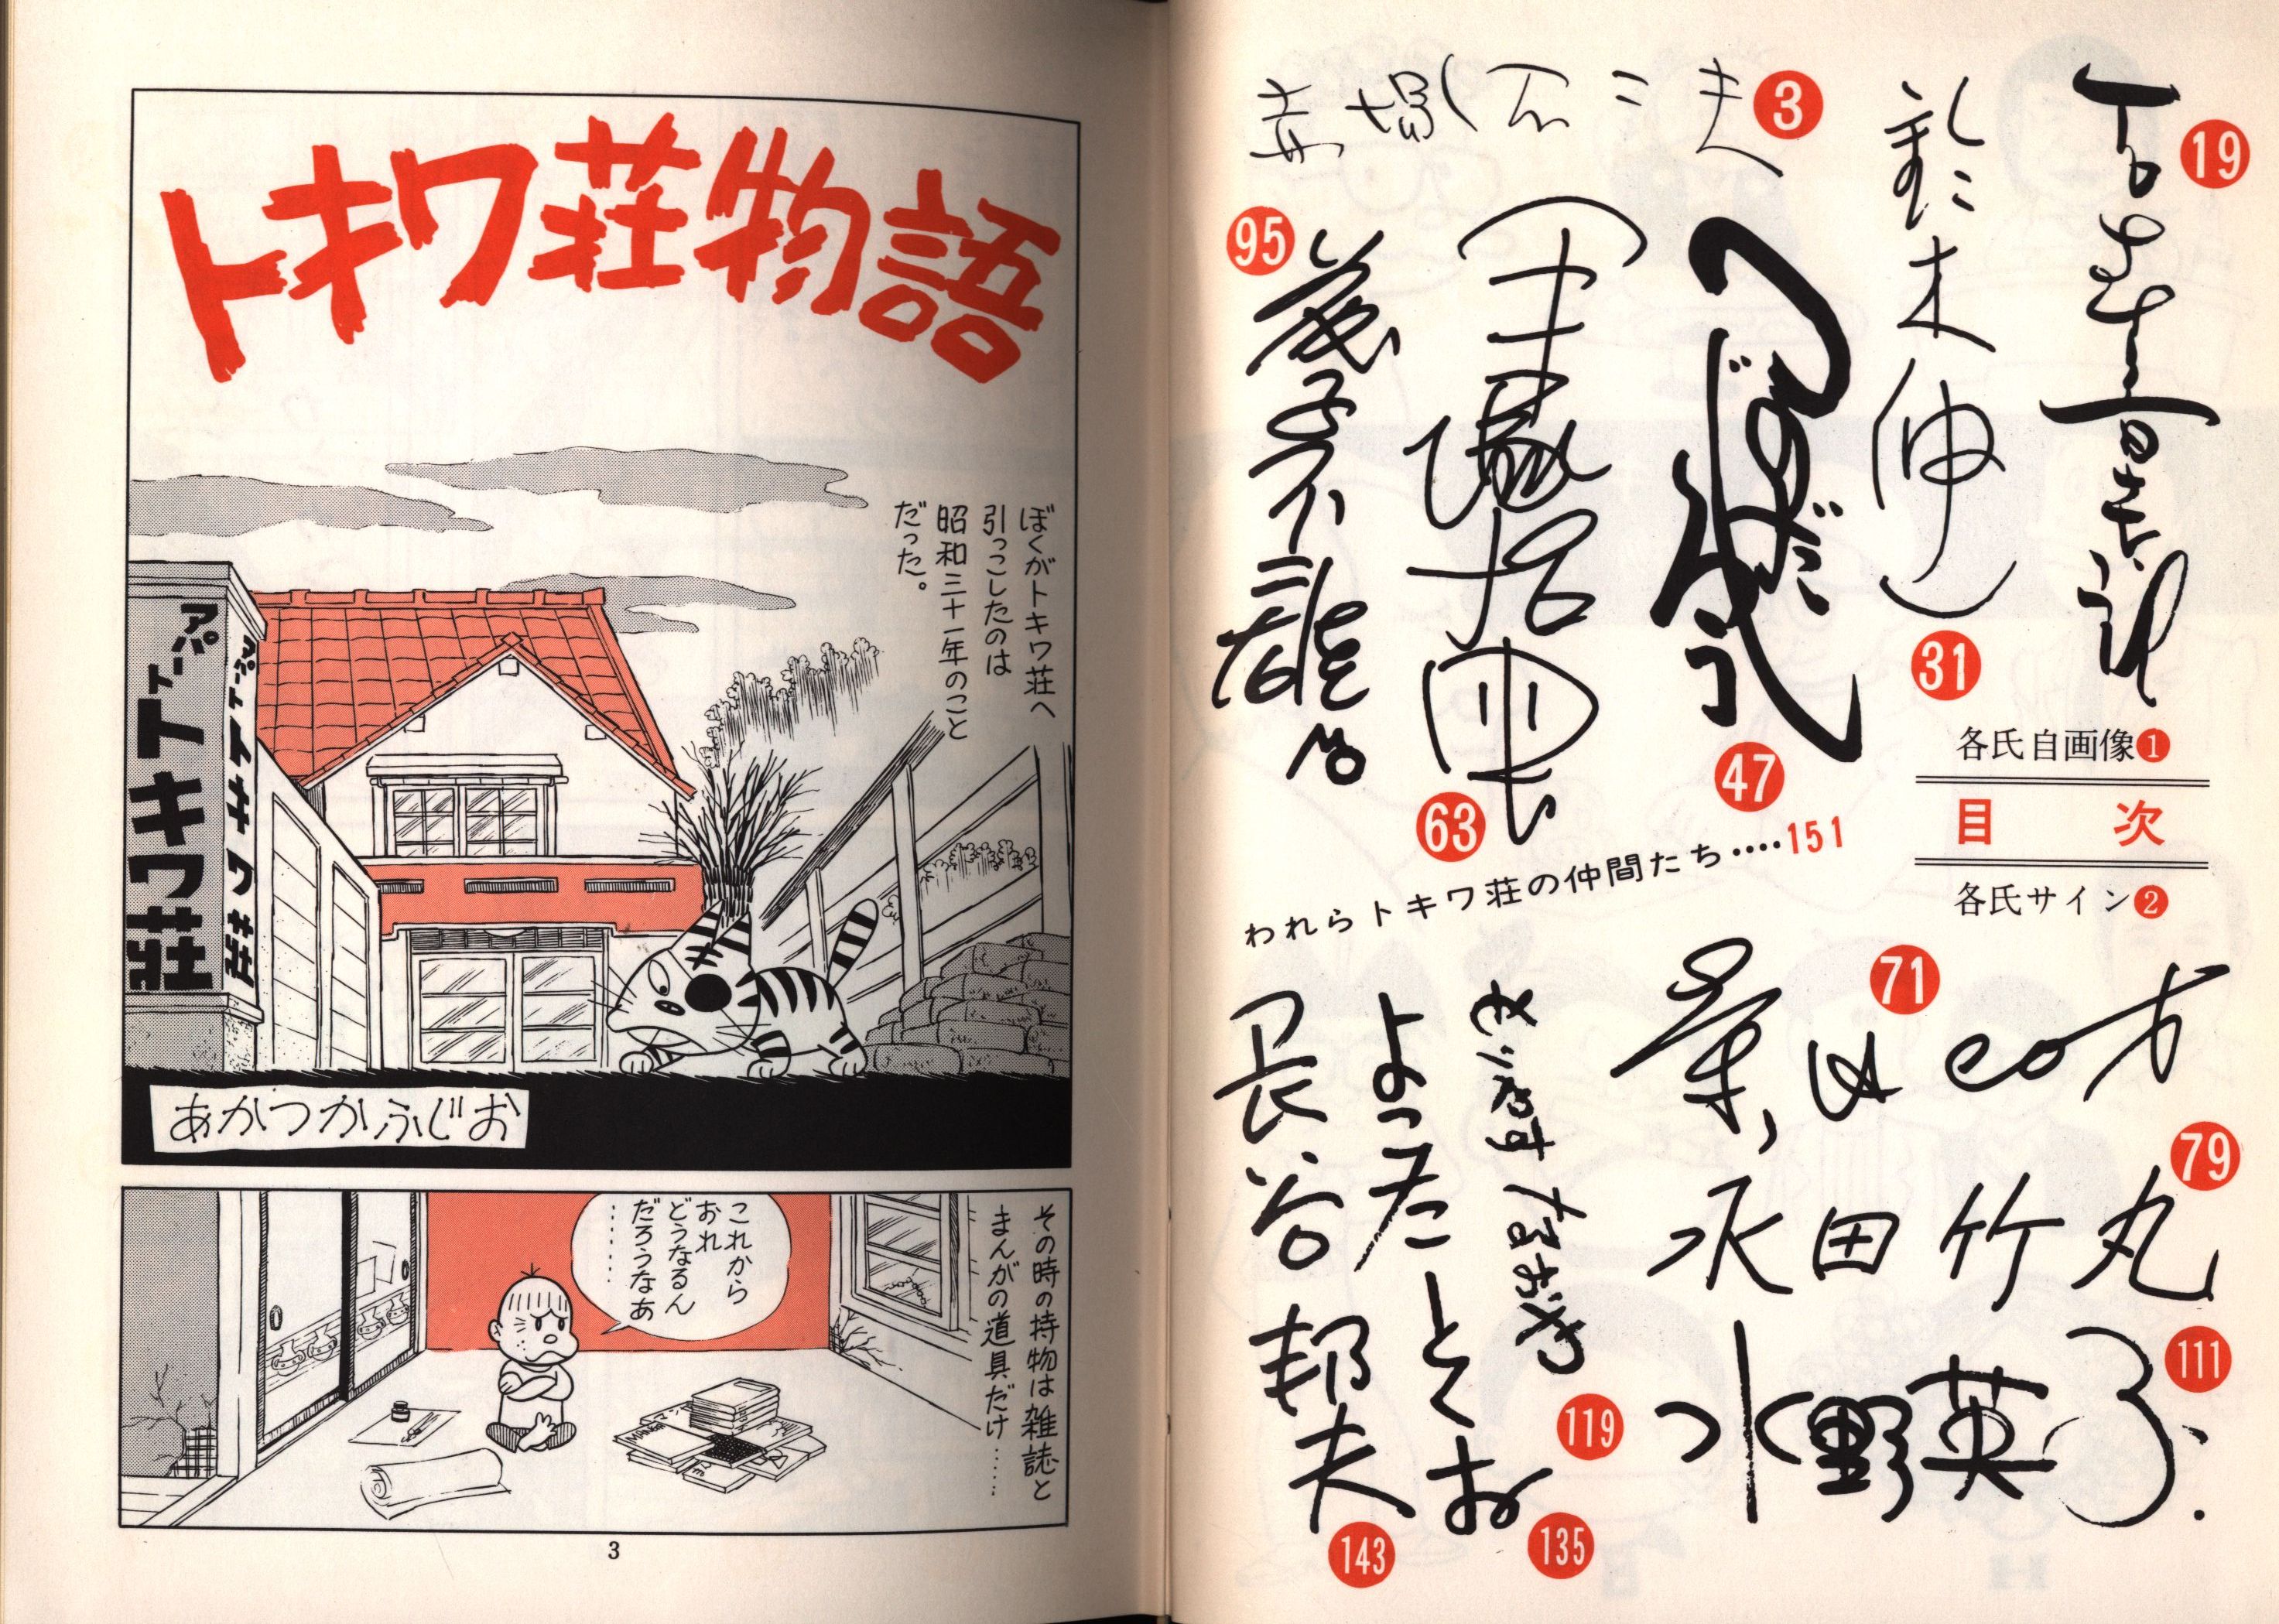 鈴木伸一
31
19
3
つのだじろう
47
63
95
各氏自画像❶
目次
各氏サイン❷
われらトキワ荘の仲間たち‥‥151
71
永田竹丸
79
水野英子
111
119
よこたとくお
135
長谷邦夫
143
トキワ荘物語
ぼくがトキワ荘へ
引っこしたのは
昭和三十一年のこと
だった。
アパート
トキワ荘
アパート
トキワ荘
あかつかふじお
その時の持物は雑誌と
まんがの道具だけ……
これから
おれ
どうなるん
だろうなあ
……
3